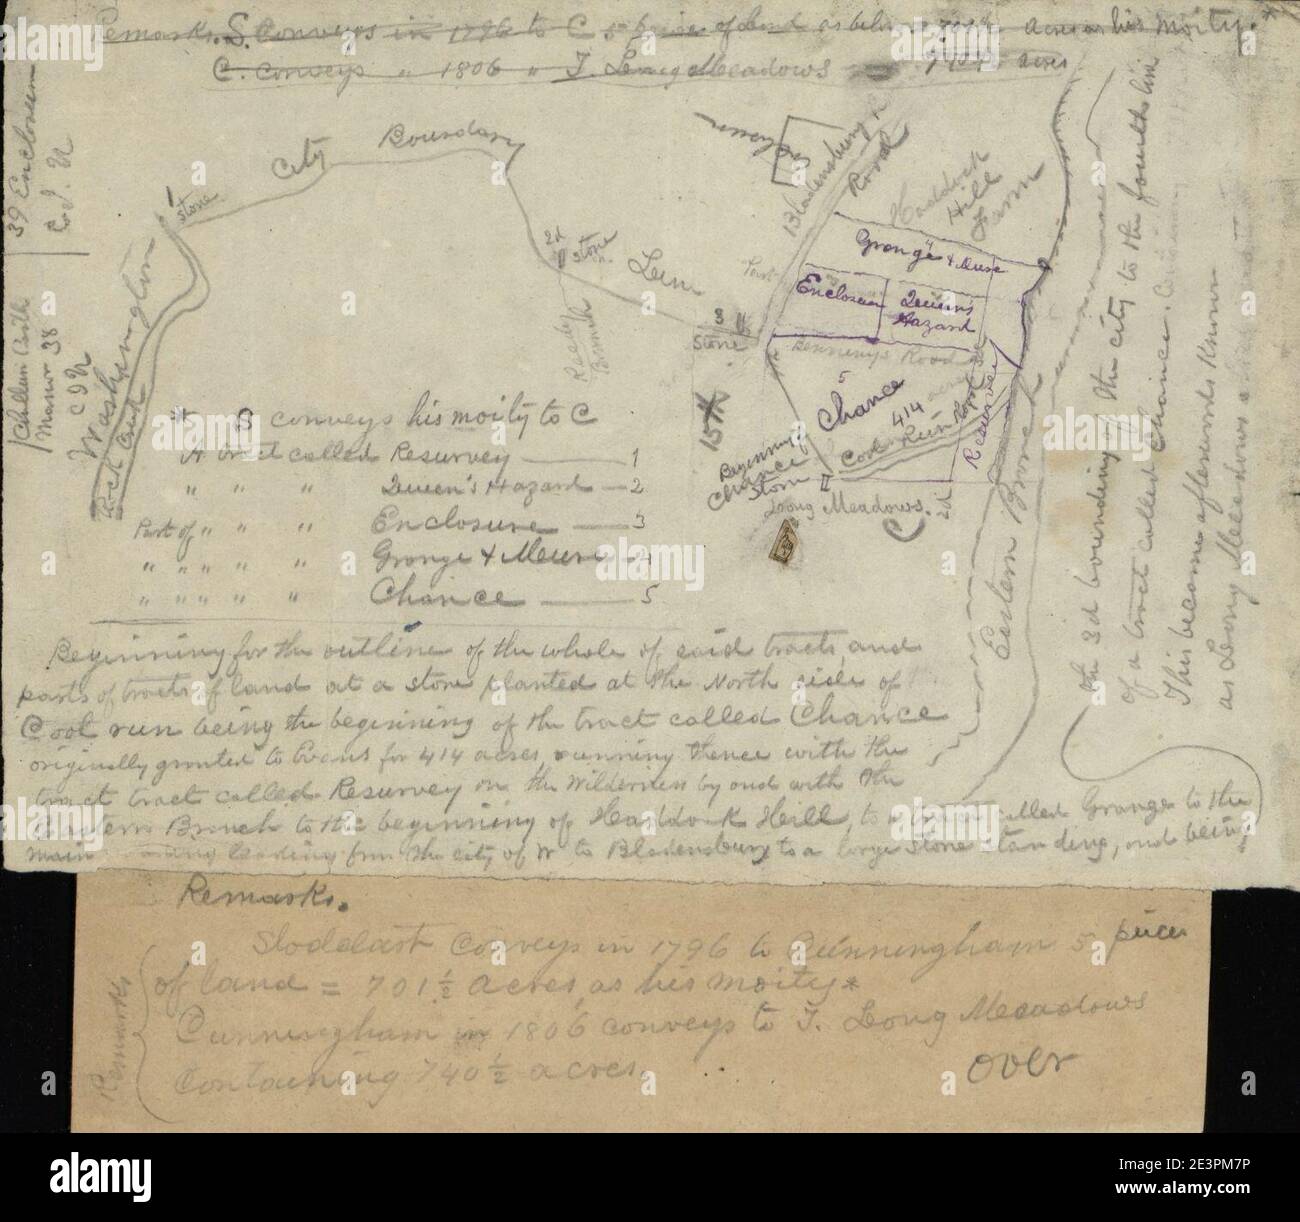 Remarks. S. Conveys in 1796 to C 5 pieces of land as below 701½ acres as his moity.*
C. conveys " 1806 " T. Long Meadows 740½ acres
39 Enclosure
Manor 38
City Boundary
1
Stone
2d
Stone
Line
3
Stone
Reedy
Branch
Washington
Rock Creek
Enclosure
Bladensburg R
Road
Haddock
Hill
Farm
Grange &
Enclosure
Queen's
Hazard
Part
Bennings Road
5
Chance
414 acres
Resurvey
Cool Run
15th
Beginning
Chance
Stone
II
Long Meadows.
2d
C
Eastern Branch
* S conveys his moity to C
A tract called Resurvey — 1
" " " Queen's Hazard — 2
Part of " " " Enclosure — 3
" " " " " Grange & Meure — 4
" " " " " Chance — 5
Beginning for the outline of the whole of said tracts, and
parts of tracts of land at a stone planted at the North side of
Cool run being the beginning of the tract called Chance
originally granted to Evans for 414 acres, running thence with the
tract tract called Resurvey on the Wilderness by and with the
Eastern Branch to the beginning of Haddock Hill, to a tract called Grange to the
main leading from the city of W to Bladensburg to a large Stone standing, and being
the 3d bounding of the city to the fourth line
of a tract called Chance.
This became afterwards known
as Long Meadows
Remarks.
Stoddart conveys in 1796 to Cunningham 5 pieces
of land = 701½ acres, as his moity*
Cunningham in 1806 conveys to T. Long Meadows
Containing 740½ acres.
over
Remarks
alamy
Image ID: 2E3PM7P
www.alamy.com